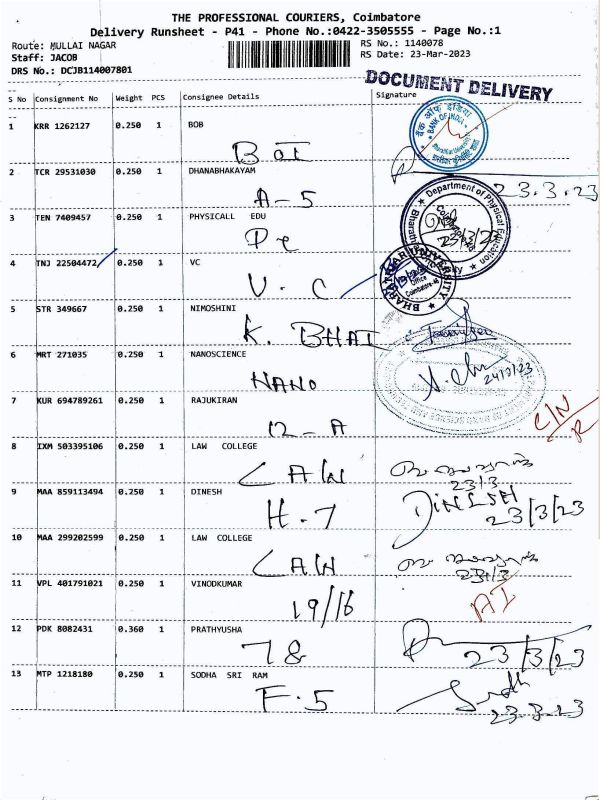 THE PROFESSIONAL COURIERS, Coimbatore
Delivery Runsheet - P41 - Phone No.:0422-3505555 - Page No.:1
Route: MULLAI NAGAR
RS No.: 1140078
Staff: JACOB
RS Date: 23-Mar-2023
DRS No.: DCJB114007801
DOCUMENT DELIVERY
S No Consignment No Weight PCS Consignee Details Signature
1 KRR 1262127 0.250 1 BOB
BOI
बैंक ऑफ इंडिया
BANK OF INDIA
2 TCR 29531030 0.250 1 DHANABHAKAYAM
A-5
23.3.23
3 TEN 7409457 0.250 1 PHYSICALL EDU
Pe
Department of Physical Education
23/3/23
4 TNJ 22504472 0.250 1 VC
V.C
BHARATHIAR UNIVERSITY
Office
Coimbatore-46
5 STR 349667 0.250 1 NIMOSHINI
K. BHAI
6 MRT 271035 0.250 1 NANOSCIENCE
NANO
24/3/23
7 KUR 694789261 0.250 1 RAJUKIRAN
12-A
C/N
R
8 IXM 503395106 0.250 1 LAW COLLEGE
LAW
23/3
9 MAA 859113494 0.250 1 DINESH
H.7
DINESH
23/3/23
10 MAA 299202599 0.250 1 LAW COLLEGE
LAW
23/3
11 VPL 401791021 0.250 1 VINODKUMAR
19/16
AI
12 PDK 8082431 0.360 1 PRATHYUSHA
78
23/3/23
13 MTP 1218180 0.250 1 SODHA SRI RAM
F.5
23.3.23